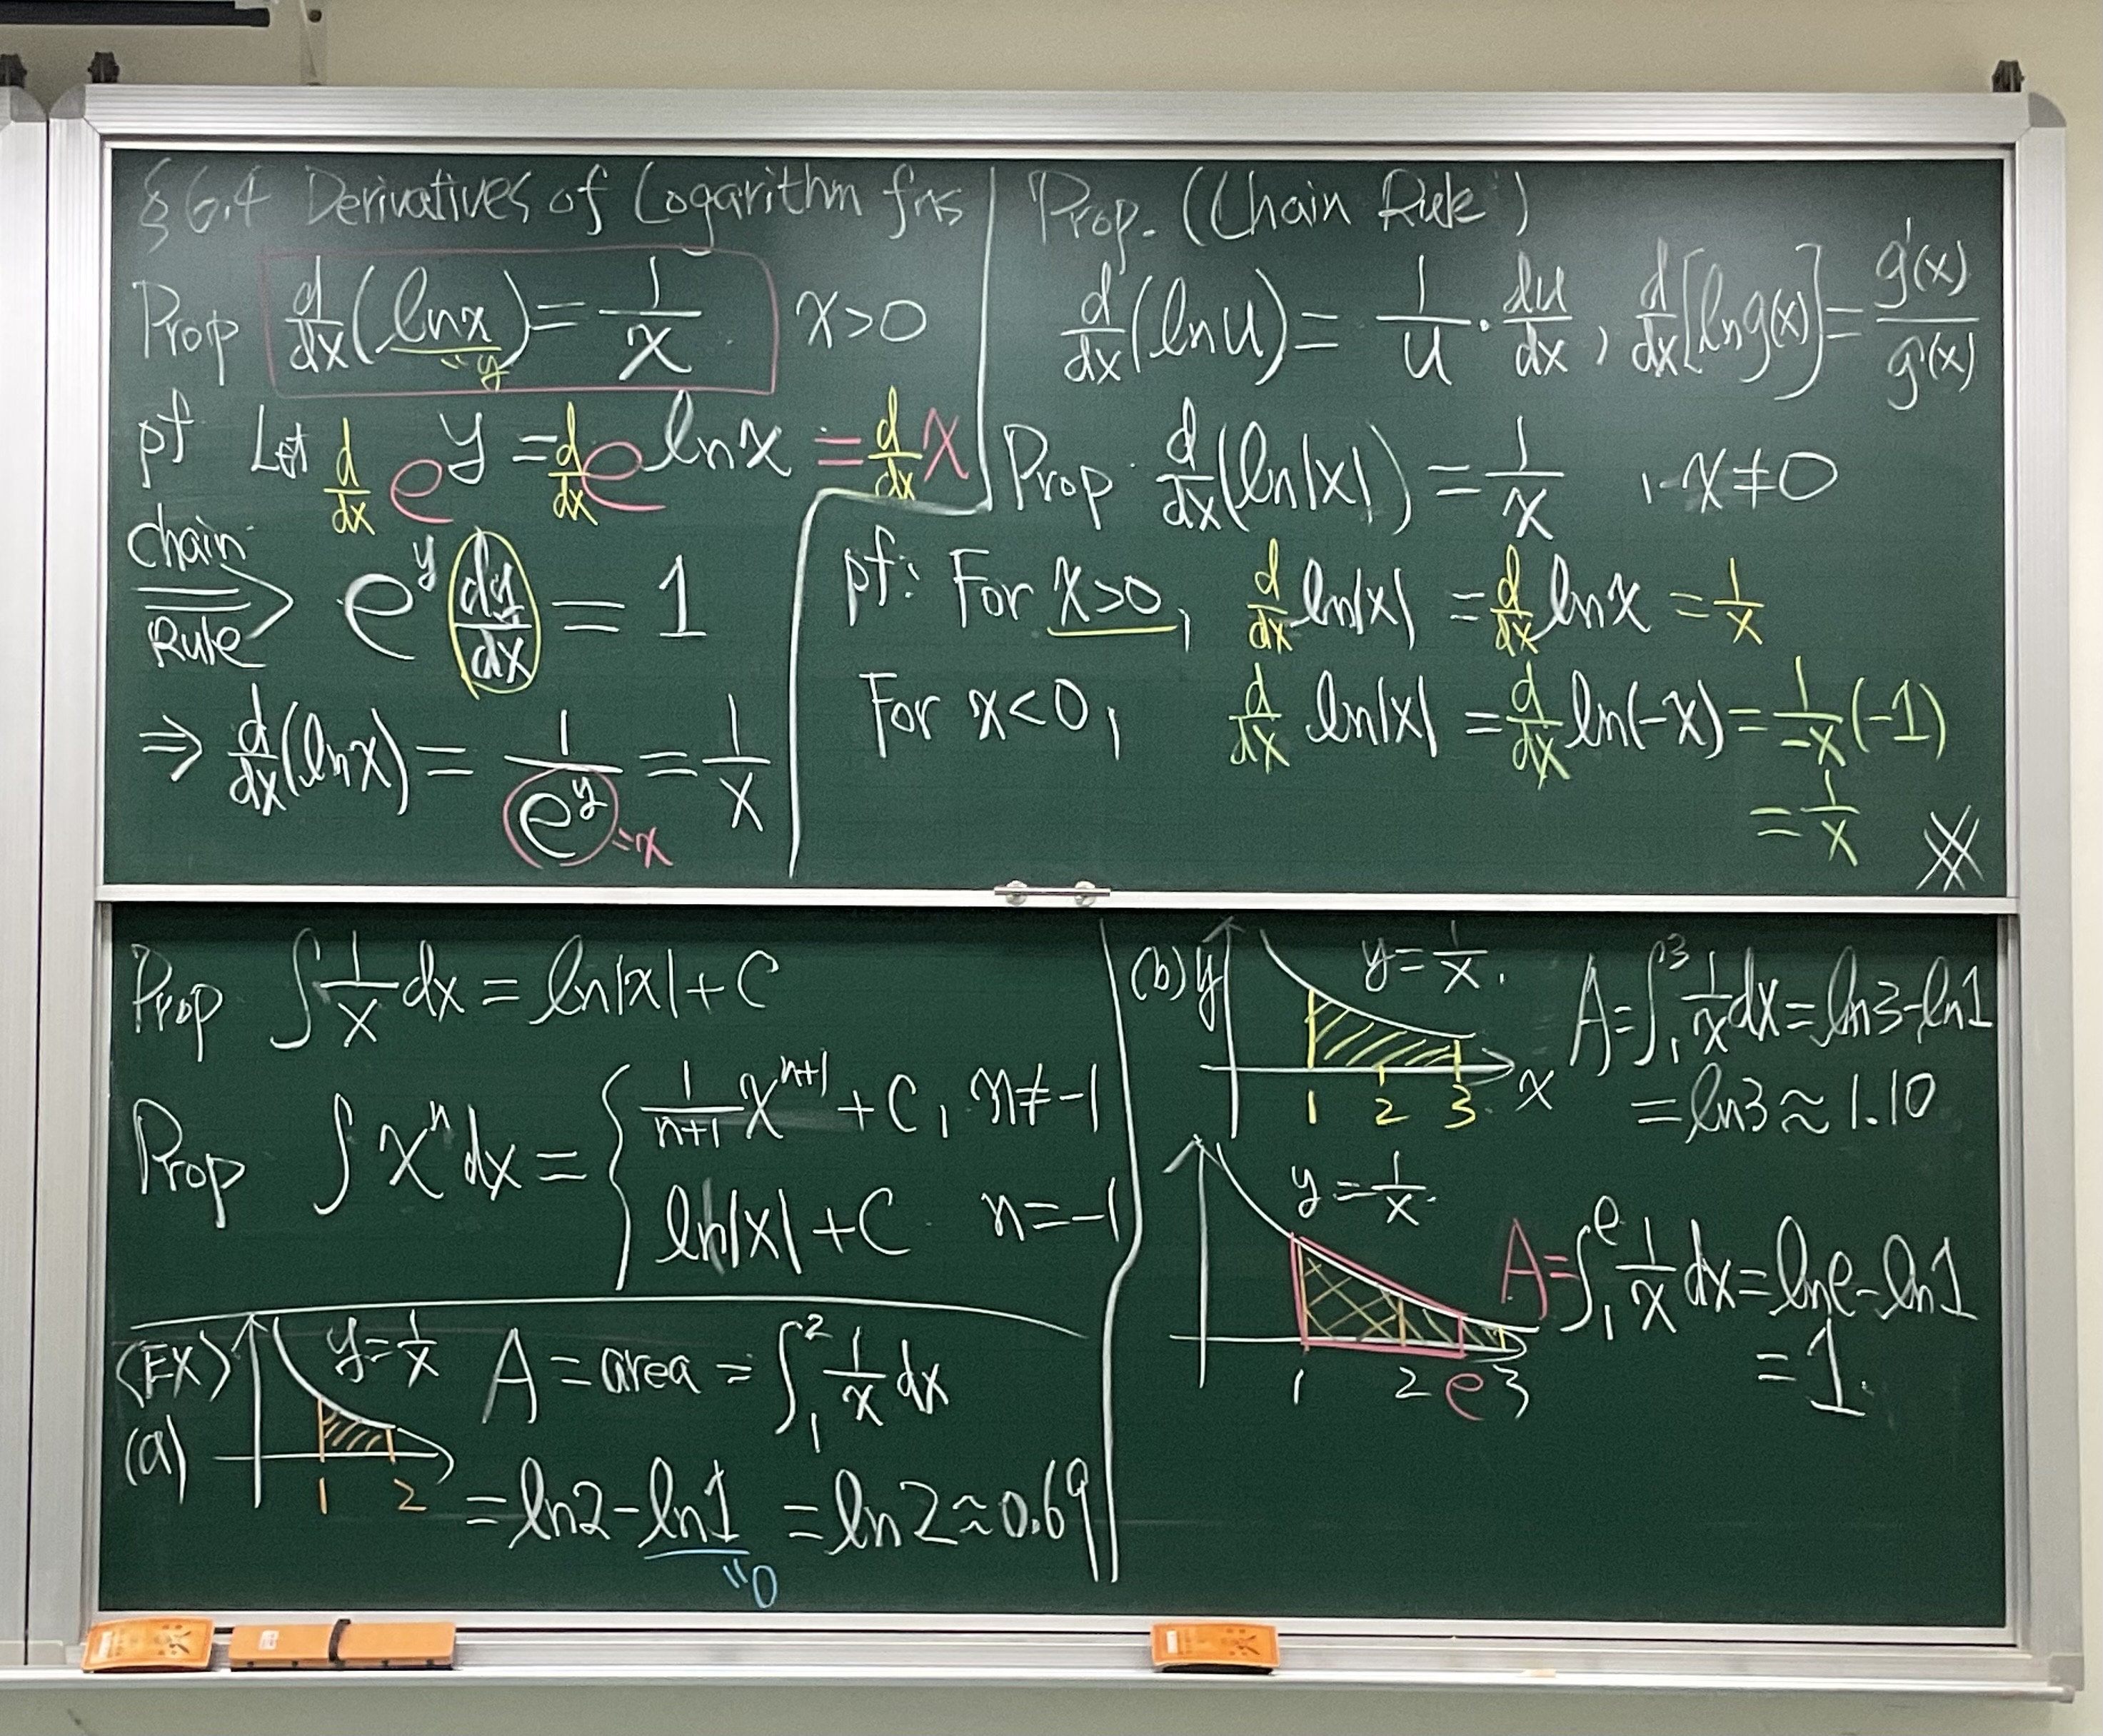 § 6.4 Derivatives of Logarithm fns
Prop d/dx (ln x) = 1/x x>0
"y
pf Let d/dx e^y = d/dx e^{ln x} = d/dx x
chain Rule ⟹ e^y dy/dx = 1
⇒ d/dx (ln x) = 1/e^y = 1/x
=x
Prop. (Chain Rule)
d/dx (ln u) = 1/u · du/dx , d/dx [ln g(x)] = g'(x)/g(x)
Prop d/dx (ln|x|) = 1/x , x≠0
pf: For x>0, d/dx ln|x| = d/dx ln x = 1/x
For x<0, d/dx ln|x| = d/dx ln(-x) = 1/-x (-1)
= 1/x
Prop ∫ 1/x dx = ln|x| + C
Prop ∫ x^n dx = { 1/(n+1) x^{n+1} + C, n≠-1
ln|x| + C n=-1
(EX) y=1/x A = area = ∫_1^2 1/x dx
(a)
1 2
= ln2 - ln1 = ln2 ≈ 0.69
"0
(b) y y=1/x. A = ∫_1^3 1/x dx = ln3 - ln1
= ln3 ≈ 1.10
1 2 3 x
y=1/x.
A = ∫_1^e 1/x dx = ln e - ln1
= 1.
1 2 e 3